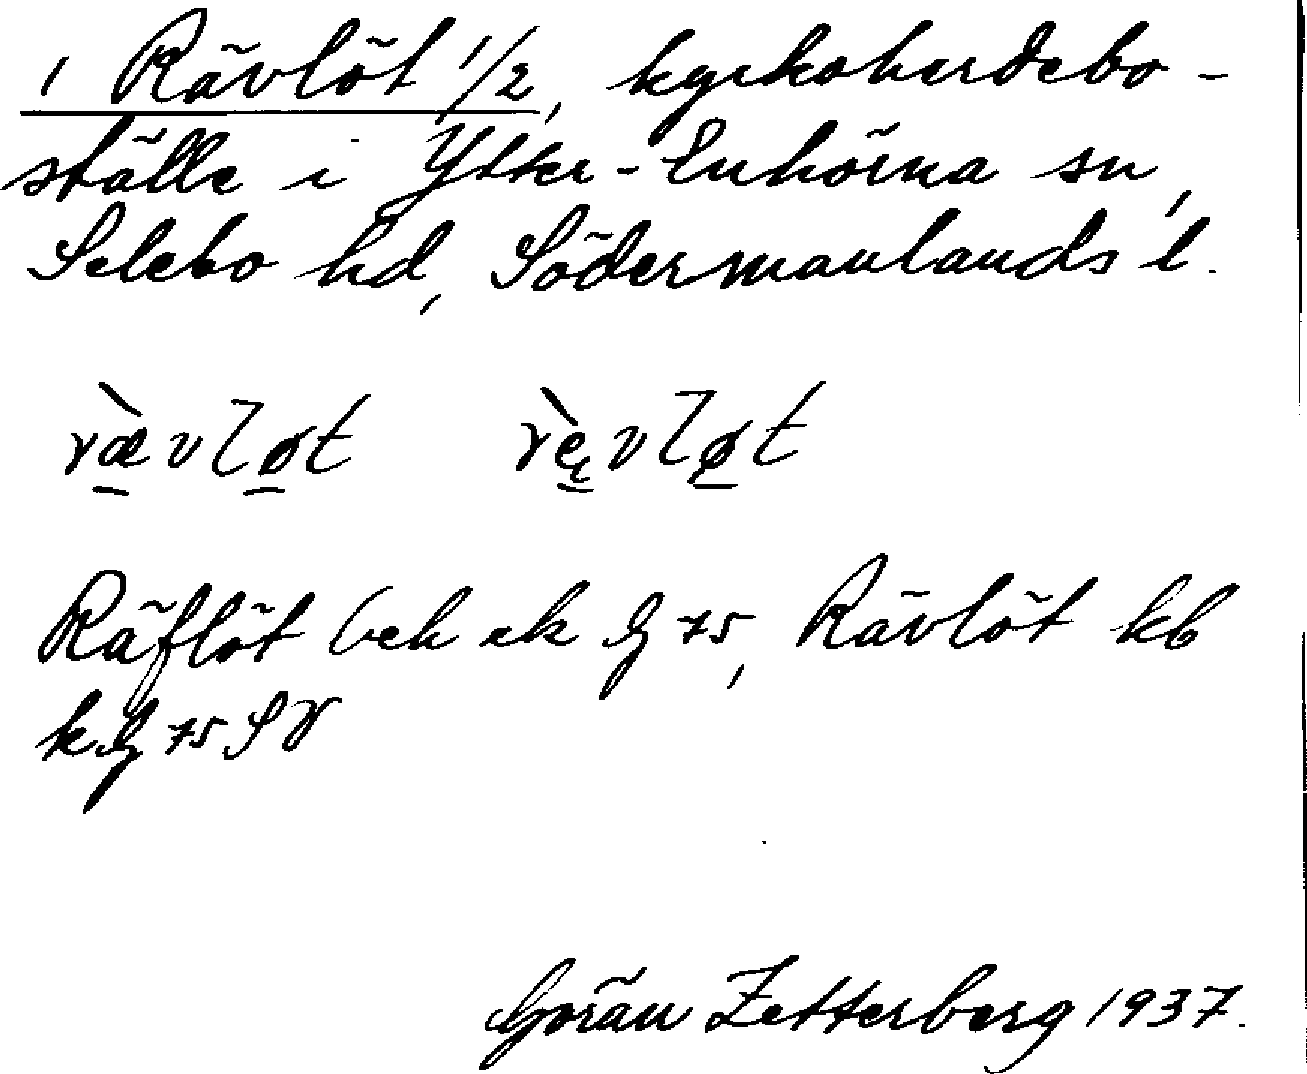 1 Rävlöt 1/2, kyrkoherdebo-
ställe i Ytter-Enhörna sn,
Selebo hd, Södermanlands l.
rævløt rèvløt
Räflöt (ek ek Lg 75, Rävlöt kb
k Lg 75 SV
Göran Zetterberg 1937.